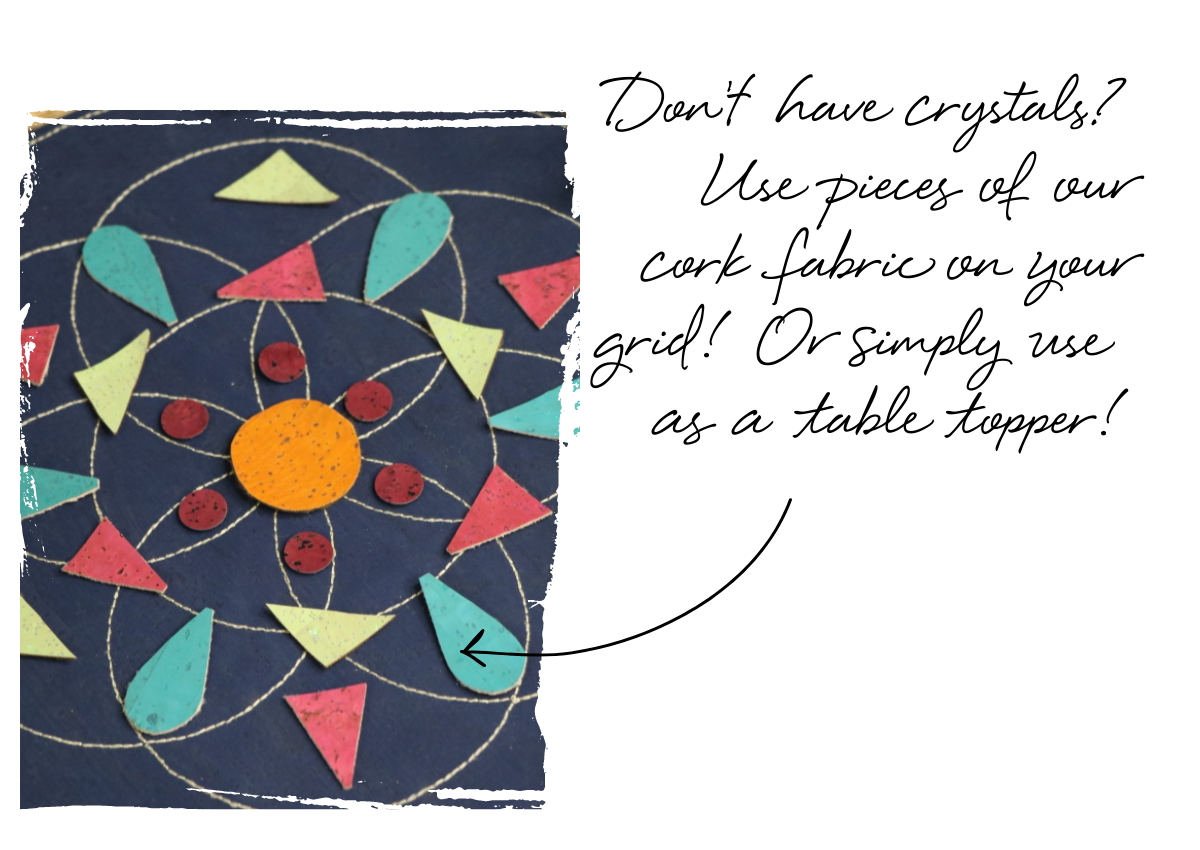 Don't have crystals?
Use pieces of our
cork fabric on your
grid! Or simply use
as a table topper!